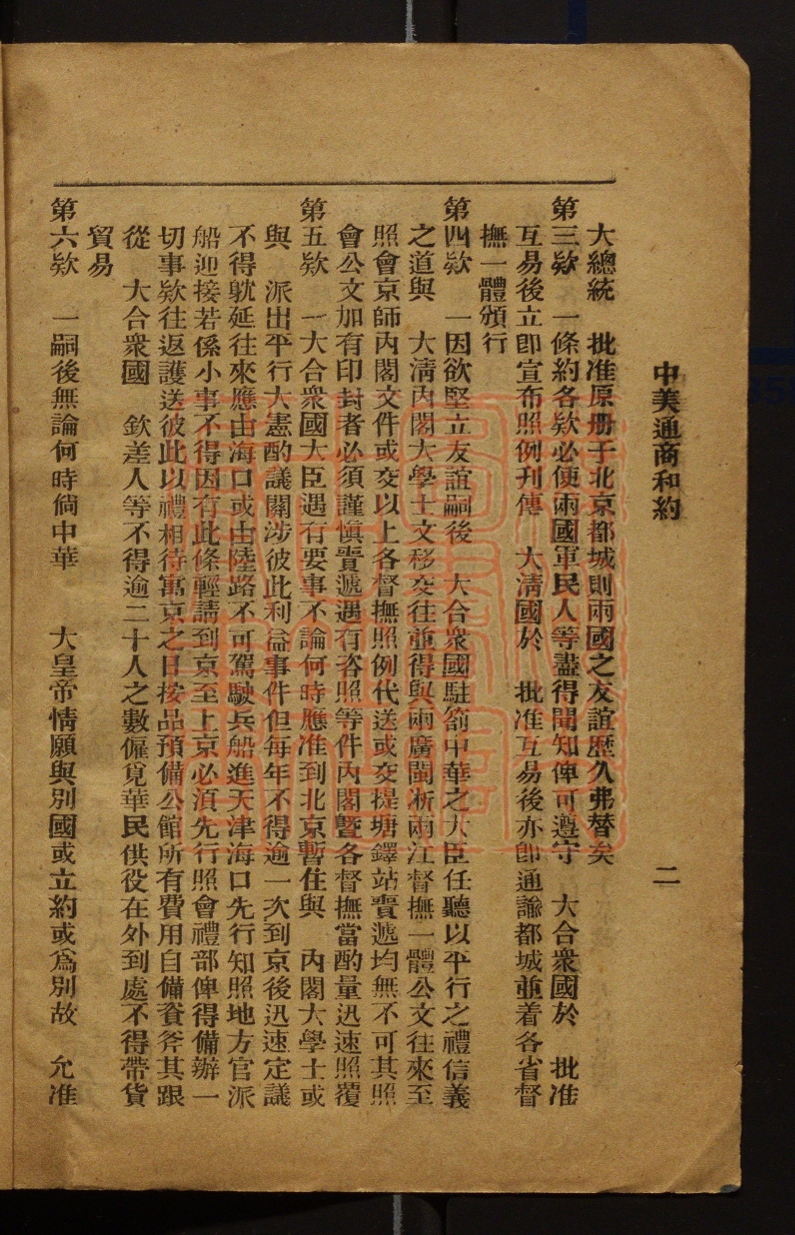 中美通商和約
二
大總統 批准原册于北京都城則兩國之友誼歷久弗替矣
第三欵 一條約各欵必使兩國軍民人等盡得聞知俾可遵守 大合衆國於 批准
互易後立卽宣布照例刋傳 大淸國於 批准互易後亦卽通諭都城並着各省督
撫一體頒行
第四欵 一因欲堅立友誼嗣後 大合衆國駐箚中華之大臣任聽以平行之禮信義
之道與 大淸內閣大學士文移交往並得與兩廣閩浙兩江督撫一體公文往來至
照會京師內閣文件或交以上各督撫照例代送或交提塘驛站賫遞均無不可其照
會公文加有印封者必須謹愼賫遞遇有咨照等件內閣曁各督撫當酌量迅速照覆
第五欵 一大合衆國大臣遇有要事不論何時應准到北京暫住與 內閣大學士或
與 派出平行大憲酌議關涉彼此利益事件但每年不得逾一次到京後迅速定議
不得躭延往來應由海口或由陸路不可駕駛兵船進天津海口先行知照地方官派
船迎接若係小事不得因有此條輕請到京至上京必湏先行照會禮部俾得備辦一
切事欵往返護送彼此以禮相待寓京之日按品預備公館所有費用自備資斧其跟
從 大合衆國 欽差人等不得逾二十人之數僱覓華民供役在外到處不得帶貨
貿易
第六欵 一嗣後無論何時倘中華 大皇帝情願與別國或立約或爲別故 允准